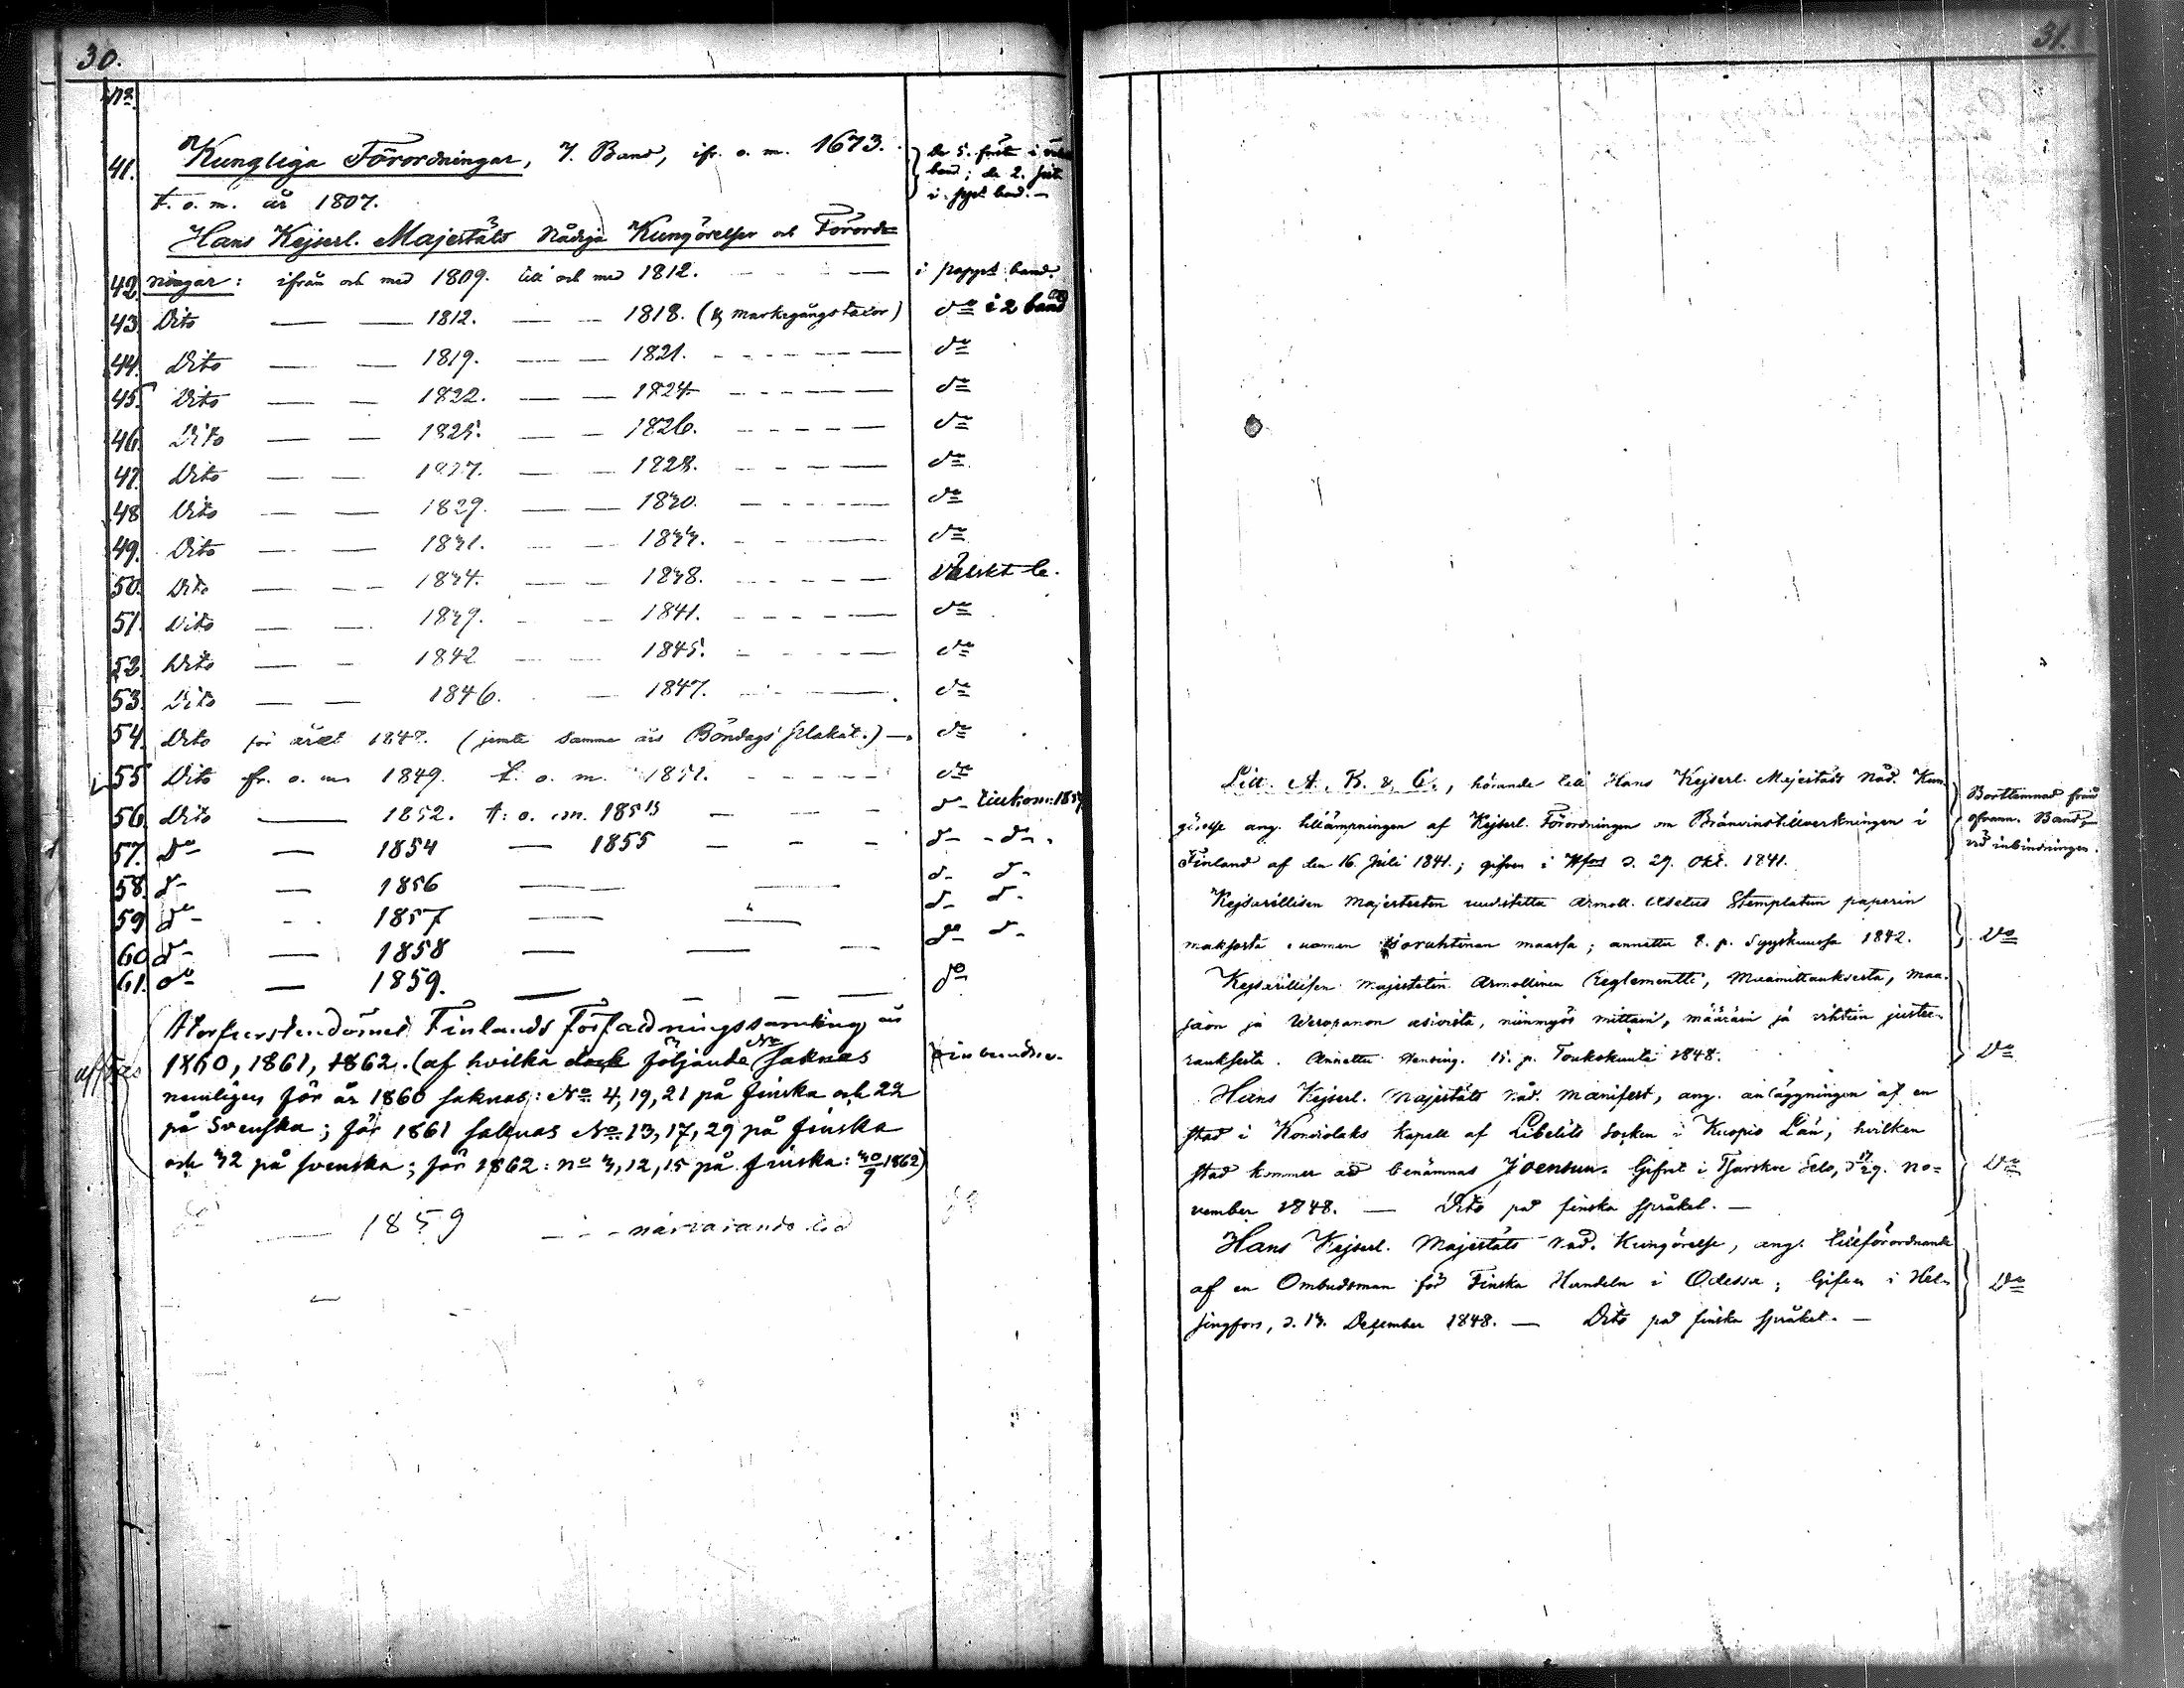 30.
No
41. Kungliga Förordningar, 7. Band, ifr. o. m. 1673. de 5. förste i
band; de 2. sist.
t. o. m. år 1807. i pppt band.
Hans Kejserl. Majestäts Nådiga Kungörelser och Förord=
42 ningar: ifrån och med 1809. till och med 1812. i pappt band.
43 Dito — — 1812. — — 1818. (& markegångstaxor) do i 2 band
44. Dito — — 1819. — — 1821. do
45. Dito — — 1822. — — 1824. do
46. Dito — — 1825. — — 1826. do
47. Dito — — 1827. — — 1828. do
48 Dito — — 1829. — — 1830. do
49. Dito — — 1831. — — 1833. do
50. Dito — — 1834. — — 1838. Välskt b.
51. Dito — — 1839. — — 1841. do
52. Dito — — 1842 — — 1845. do
53. Dito — — 1846. — 1847. do
54. Dito för året 1848. (jemte samma års Böndags plakat.) — do
55 Dito ifr. o. m. 1849. t. o. m. 1851. do
56. Dito — 1852. t. o. m. 1853 do Tillkom: 1857
57. Do — 1854 — 1855 — — — do do
58. do — 1856 — — do do
59 do — 1857 — — do do
60 do — 1858 — — do do
61. do — 1859. — — do
Storfurstendömet Finlands Författningssamling år
1860, 1861, 1862. (af hvilka dock följande No saknas oinbundna.
afföras
nemligen för år 1860 saknas: No 4, 19, 21 på finska och 22
på Svenska; för 1861 saknas No 13, 17, 29 på finska
och 32 på svenska; för 1862: no 3, 12, 15 på finska: 30/9 1862)
do — 1859 — närvarande do
31.
Litt. A. B. & C., hörande till Hans Kejserl. Majestäts Nåd. Kun- Bortlemnad från
görelse ang. tillämpningen af Kejserl. Förordningen om Bränvinstillverkningen i ofvann. Band,
Finland af den 16. Juli 1841.; gifven i Hfors d. 29. Okt. 1841. vid inbindningen.
Kejsarillisen Majesteetin uudistettu Armoll. Asetus Stemplatun paperin
maksosta Suomen Isoruhtinan maassa; annettu 8. p. Syyskuussa 1842. Do
Kejsarillisen Majestetin Armollinen Reglementti, Maamittauksesta, maa-
jaon ja Weropanon asioista, niinmyös mittain, määräin ja vihtäin justee-
rauksesta. Annettu Hensing. 15. p. Toukokuuta 1848. Do
Hans Kejserl. Majestäts Nåd. Manifest, ang. anläggningen af en
stad i Kondiolaks kapell af Libelits Socken i Kuopio Län, hvilken
stad kommer att benämnas Joensuu. Gifvet i Tsarskoe Selo, d. 17/29. No= Do
vember 1848. — Dito på finska språket. —
Hans Kejserl. Majestäts Nåd. Kungörelse, ang. tillförordnande
af en Ombudsman för Finska Handeln i Odessa; Gifven i Hel- Do
singfors, d. 13. December 1848. — Dito på finska språket. —